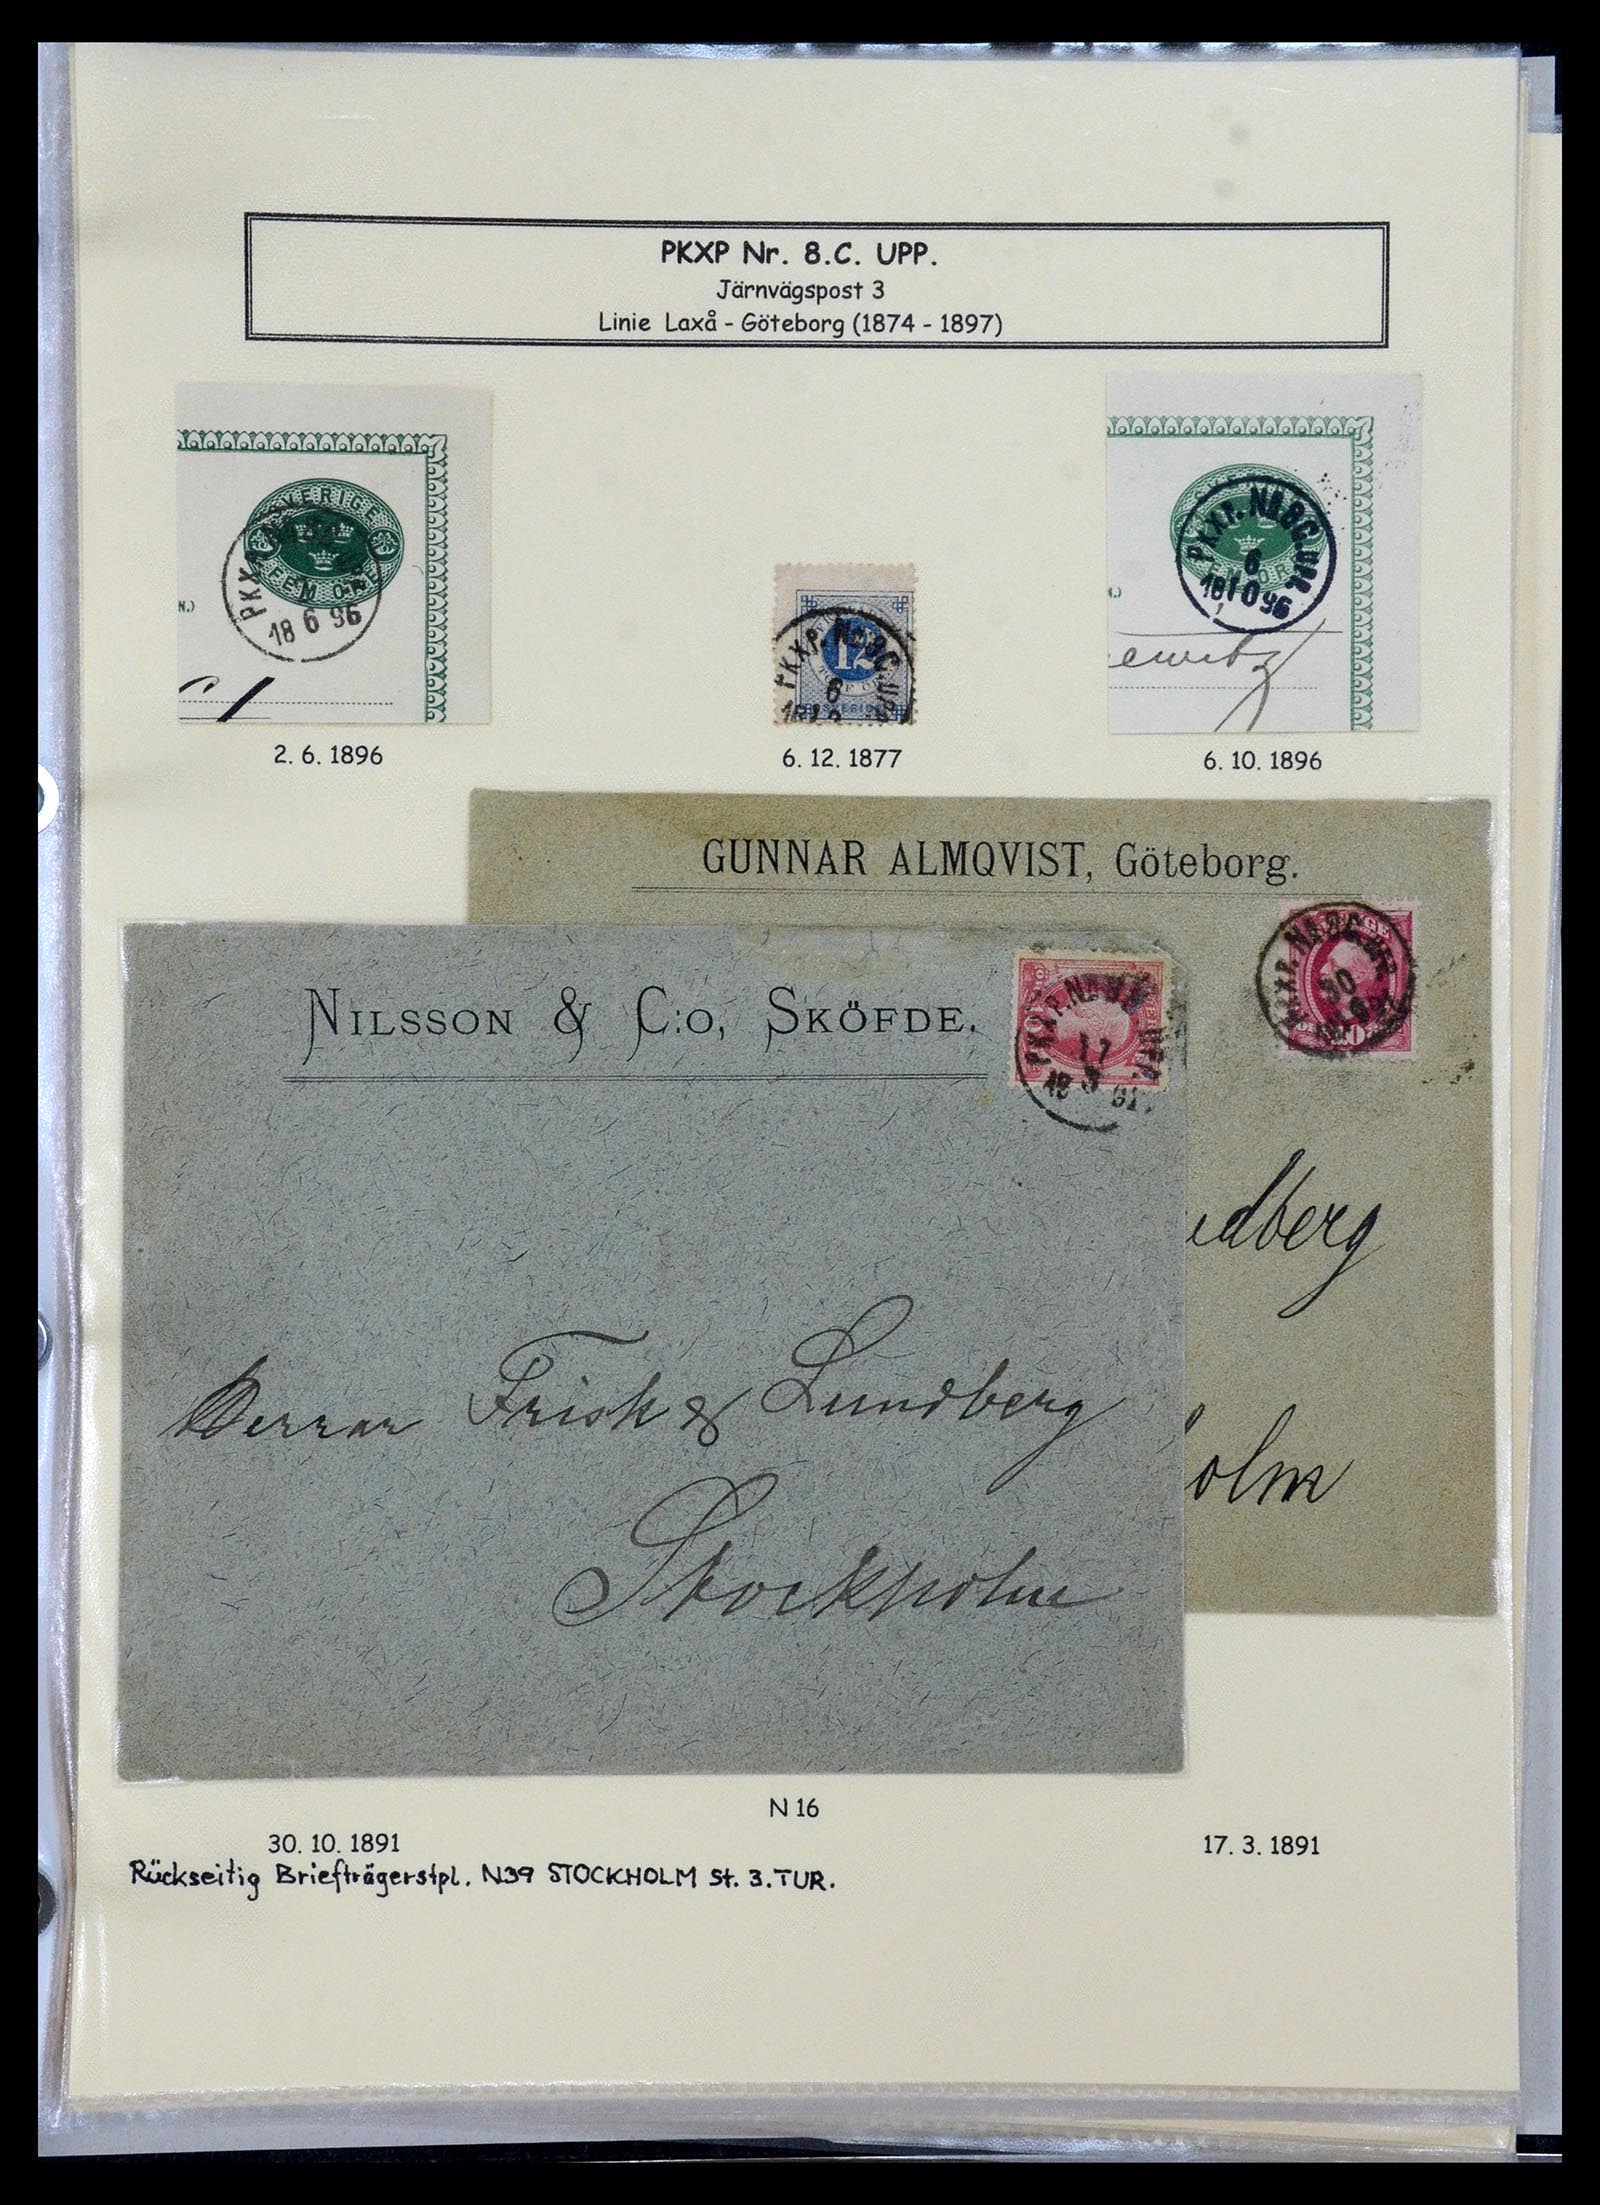 PKXP Nr. 8.C. UPP.
Järnvägspost 3
Linie Laxå - Göteborg (1874 - 1897)
SVERIGE
FEM ÖRE
PKXP
18 6 96
N.)
2. 6. 1896
PKXP. No 8C. UPP.
12
6
SVERIGE
6. 12. 1877
PKXP. No 8C. UPP.
6
18 10 96
ewitz
6. 10. 1896
GUNNAR ALMQVIST, Göteborg.
PKXP. No 8C. UPP.
30
dberg
olm
NILSSON & C:O, SKÖFDE.
PKXP. No 8 UPP.
17
18 3 91.
Herrar Frisk & Lundberg
Stockholm
N 16
30. 10. 1891
17. 3. 1891
Rückseitig Briefträgerstpl. N39 STOCKHOLM St. 3. TUR.